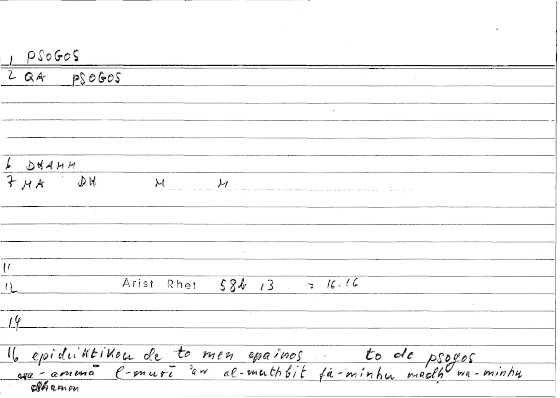 1 PSOGOS
2 QA PSOGOS
6 DHAMM
7 MA DH M M
11
12 Arist Rhet 58b 13 = 16.16
14
16 epideiktikou de to men epainos to de psogos
wa-ammā l-murī 'aw al-muthbit fa-minhu madḥ wa-minhu
dhamm